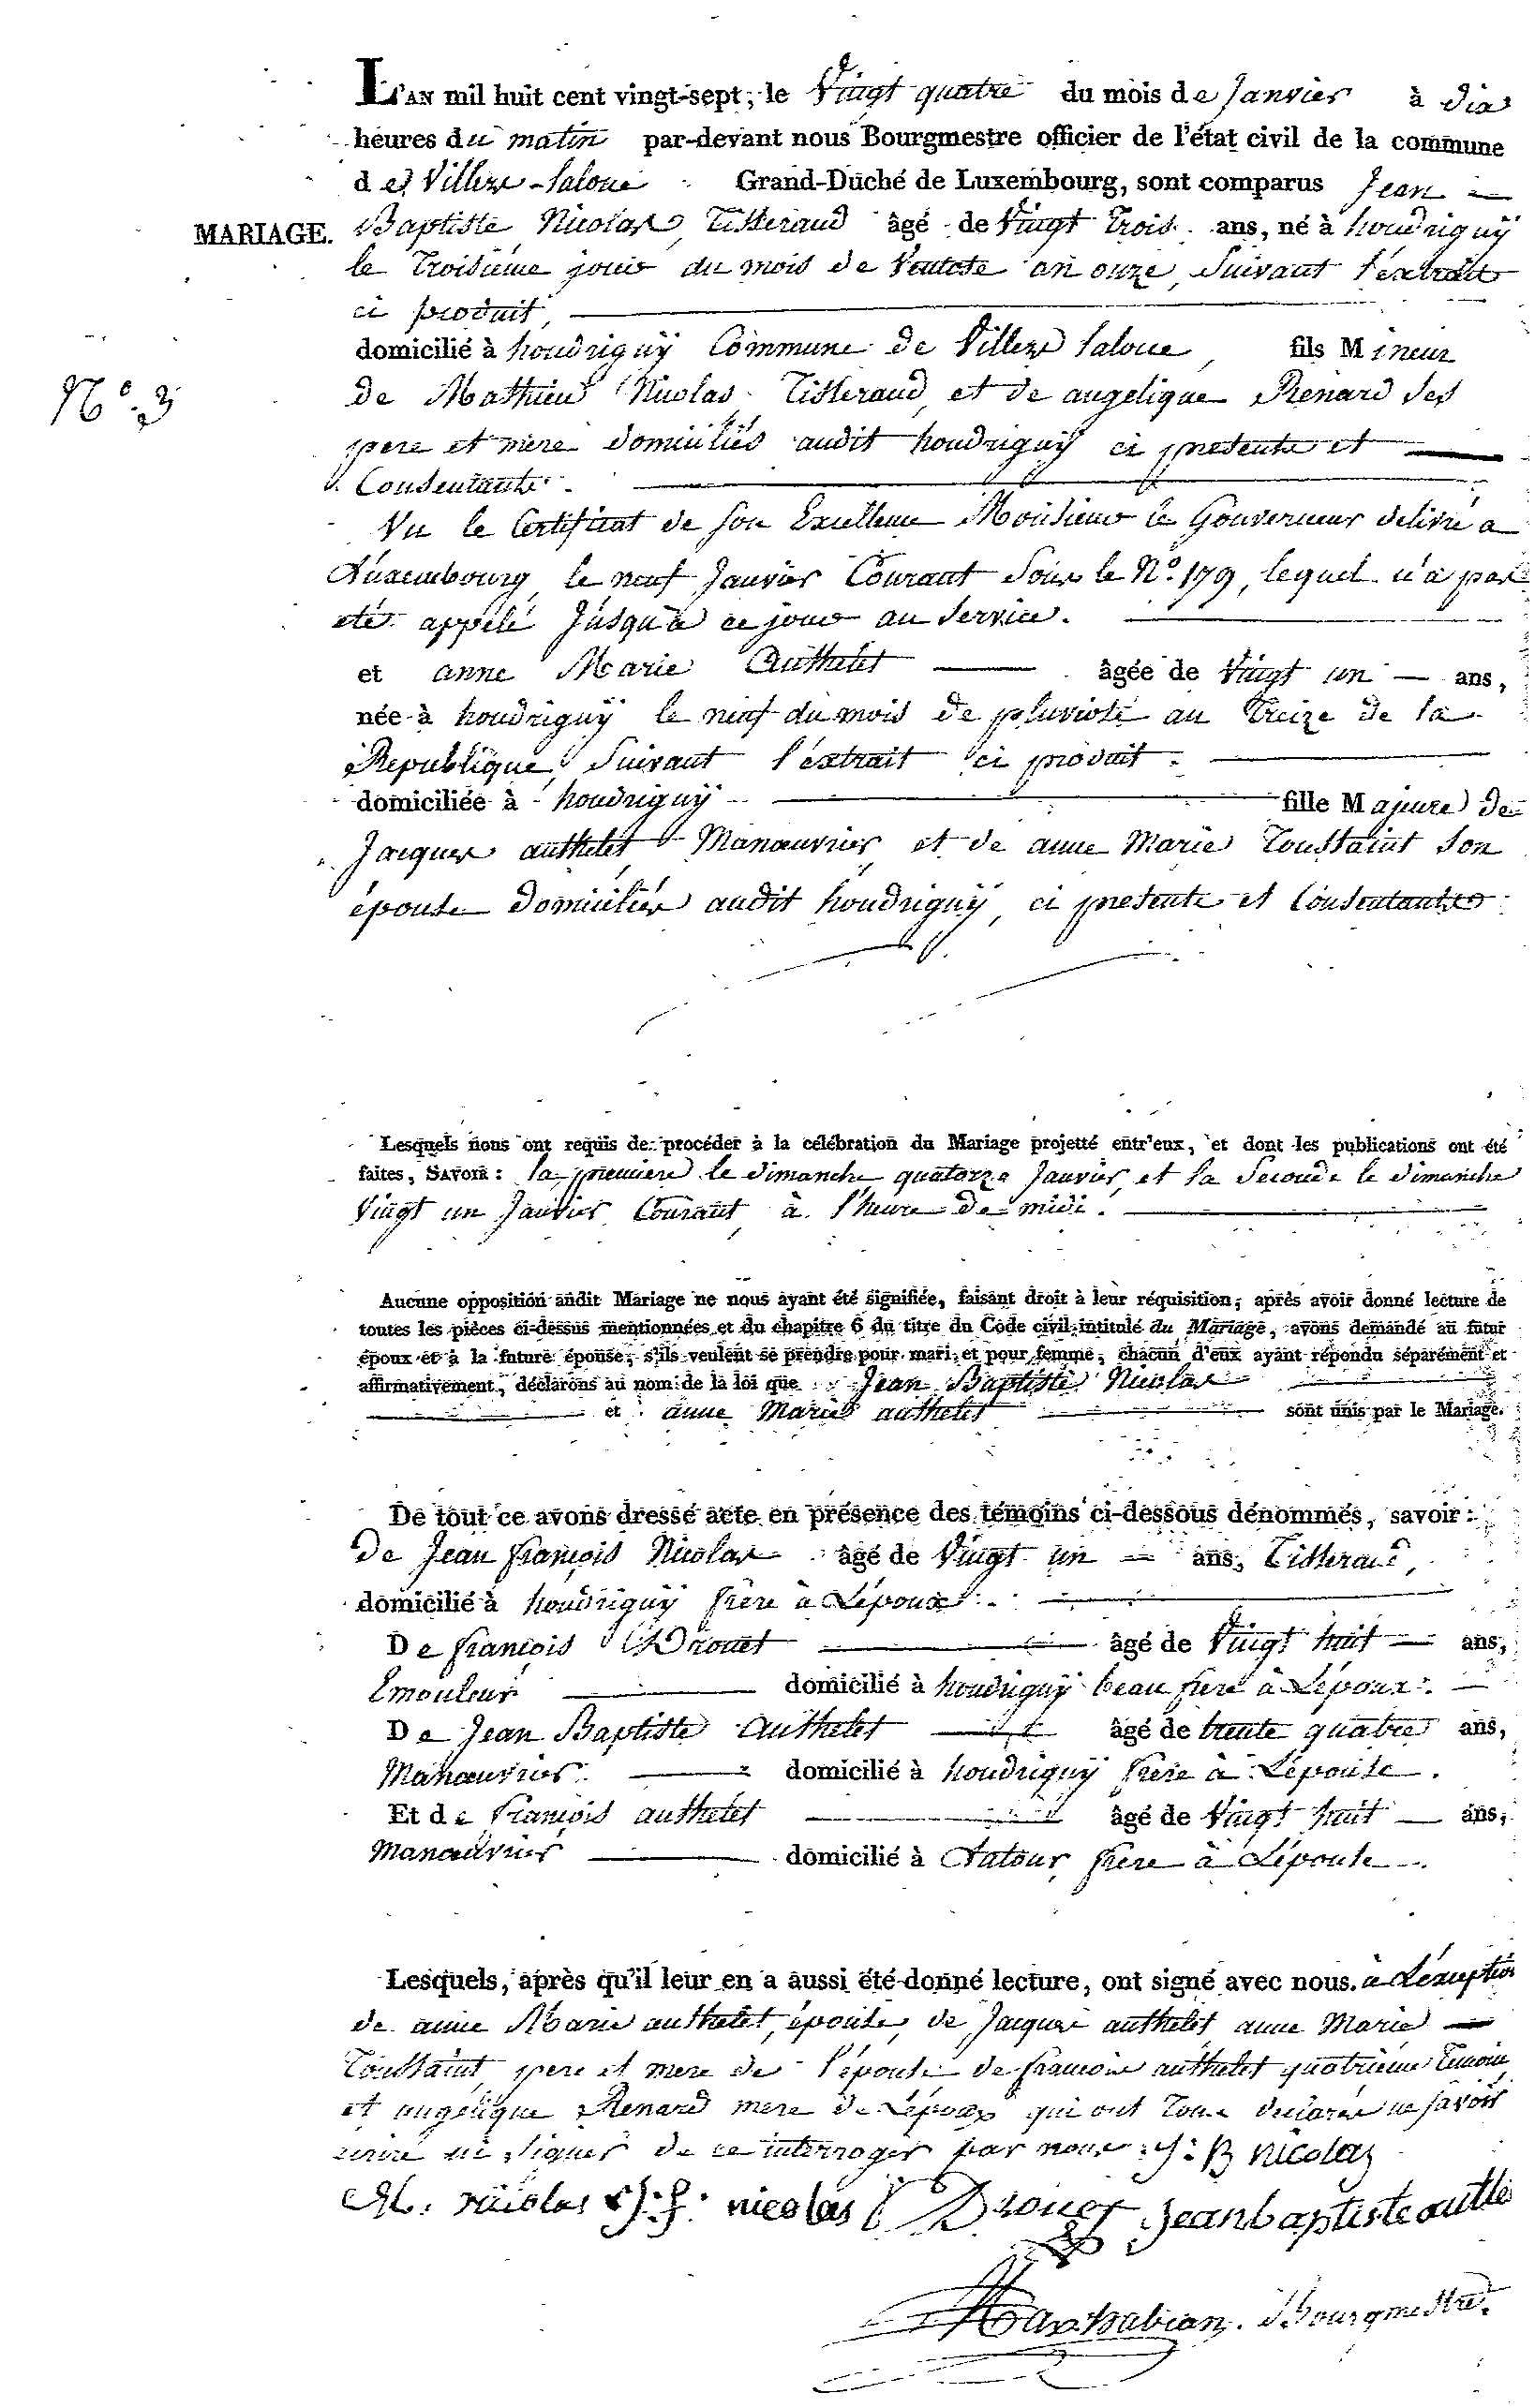 L'AN mil huit cent vingt-sept, le Vingt quatre du mois de Janvier à dix
heures du matin par-devant nous Bourgmestre officier de l'état civil de la commune
de Villers-laloue Grand-Duché de Luxembourg, sont comparus Jean
MARIAGE. Baptiste Nicolas, Tisserand âgé de Vingt trois ans, né à houdrigny
le troisieme jour du mois de Ventose an onze, Suivant l'éxtrait
ci produit,
domicilié à houdrigny Commune de Villers laloue, fils Mineur
N.º 3 de Mathieu Nicolas Tisserand, et de angelique Renard ses
pere et mere domiciliés audit houdrigny ci presents et
Consentants.
Vu le Certificat de son Excellence Monsieur le Gouverneur delivré a
Luxembourg, le neuf Janvier Courant Sous le Nº. 179, lequel n'a pas
eté appélé Jusqu'à ce jour au Service.
et anne Marie Authelet âgée de Vingt un ans,
née à houdrigny le neuf du mois de pluviose an treize de la
Republique, Suivant l'éxtrait ci produit.
domiciliée à houdrigny fille Majeure de
Jacques authelet, Manœuvrier, et de anne Marie Toussaint son
épouse domiciliés audit houdrigny, ci presents et Consentants
Lesquels nous ont requis de procéder à la célébration du Mariage projetté entr'eux, et dont les publications ont été
faites, SAVOIR : la premiere le dimanche quatorze Janvier, et la Seconde le dimanche
Vingt un Janvier Courant, à l'heure de midi.
Aucune opposition audit Mariage ne nous ayant été signifiée, faisant droit à leur réquisition, après avoir donné lecture de
toutes les pièces ci-dessus mentionnées et du chapitre 6 du titre du Code civil intitulé du Mariage, avons demandé au futur
époux et à la future épouse, s'ils veulent se prendre pour mari et pour femme, chacun d'eux ayant répondu séparément et
affirmativement, déclarons au nom de la loi que Jean Baptiste Nicolas
et anne Marie authelet sont unis par le Mariage.
De tout ce avons dressé acte en présence des témoins ci-dessous dénommés, savoir :
de Jean françois Nicolas âgé de Vingt un ans, Tisserand,
domicilié à houdrigny frère à L'époux.
De françois Drouet âgé de Vingt huit ans,
Emouleur domicilié à houdrigny beau frere à L'époux.
De Jean Baptiste Authelet âgé de trente quatre ans,
Manœuvrier domicilié à houdrigny frere à L'épouse.
Et de françois authelet âgé de Vingt huit ans,
Manœuvrier domicilié à Latour, frere à L'épouse.
Lesquels, après qu'il leur en a aussi été donné lecture, ont signé avec nous. à L'éxception
de anne Marie authelet, épouse, de Jacques authelet anne Marie
Toussaint, pere et mere de l'épouse de francois authelet quatrieme Temoin,
et angélique Renard mere de L'époux qui ont Tous declarés ne savoir
ecrire ni signer de ce interroges par nous. J: B nicolas
M. nicolas J: f: nicolas Drouet jeanbaptiste authelet
Bourgmestre.